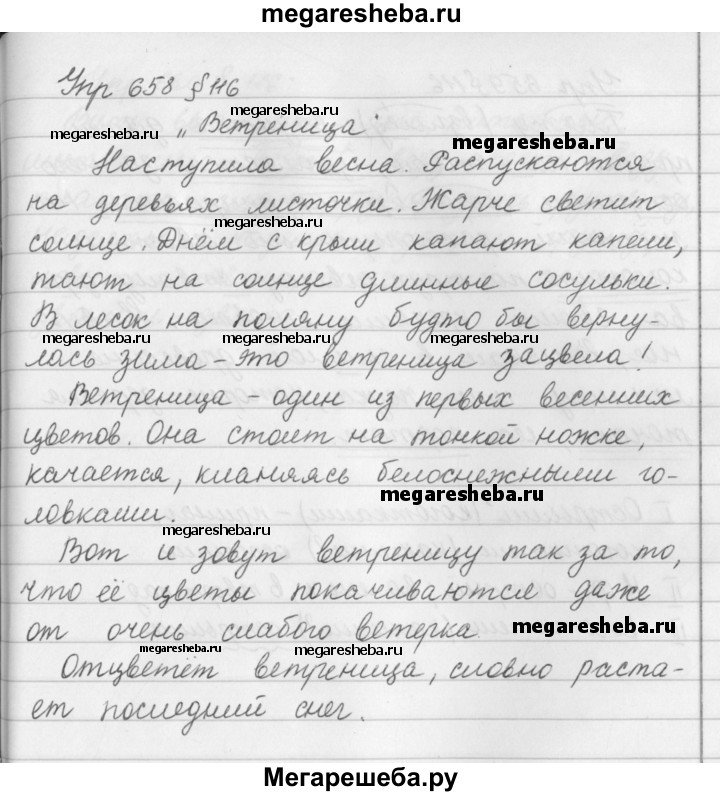 megaresheba.ru
Упр 658 § 116
megaresheba.ru
megaresheba.ru
„Ветреница"
megaresheba.ru
Наступила весна. Распускаются
на деревьях листочки. Жарче светит
megaresheba.ru
солнце. Днём с крыш капают капели,
тают на солнце длинные сосульки.
В лесок на поляну будто бы верну-
megaresheba.ru megaresheba.ru megaresheba.ru
лась зима – это ветреница зацвела!
Ветреница – один из первых весенних
цветов. Она стоит на тонкой ножке,
качается, кланяясь белоснежными го-
megaresheba.ru
ловками.
megaresheba.ru
Вот и зовут ветреницу так за то,
что её цветы покачиваются даже
от очень слабого ветерка.
megaresheba.ru
megaresheba.ru megaresheba.ru
Отцветёт ветреница, словно раста-
ет последний снег.
Мегарешеба.ру